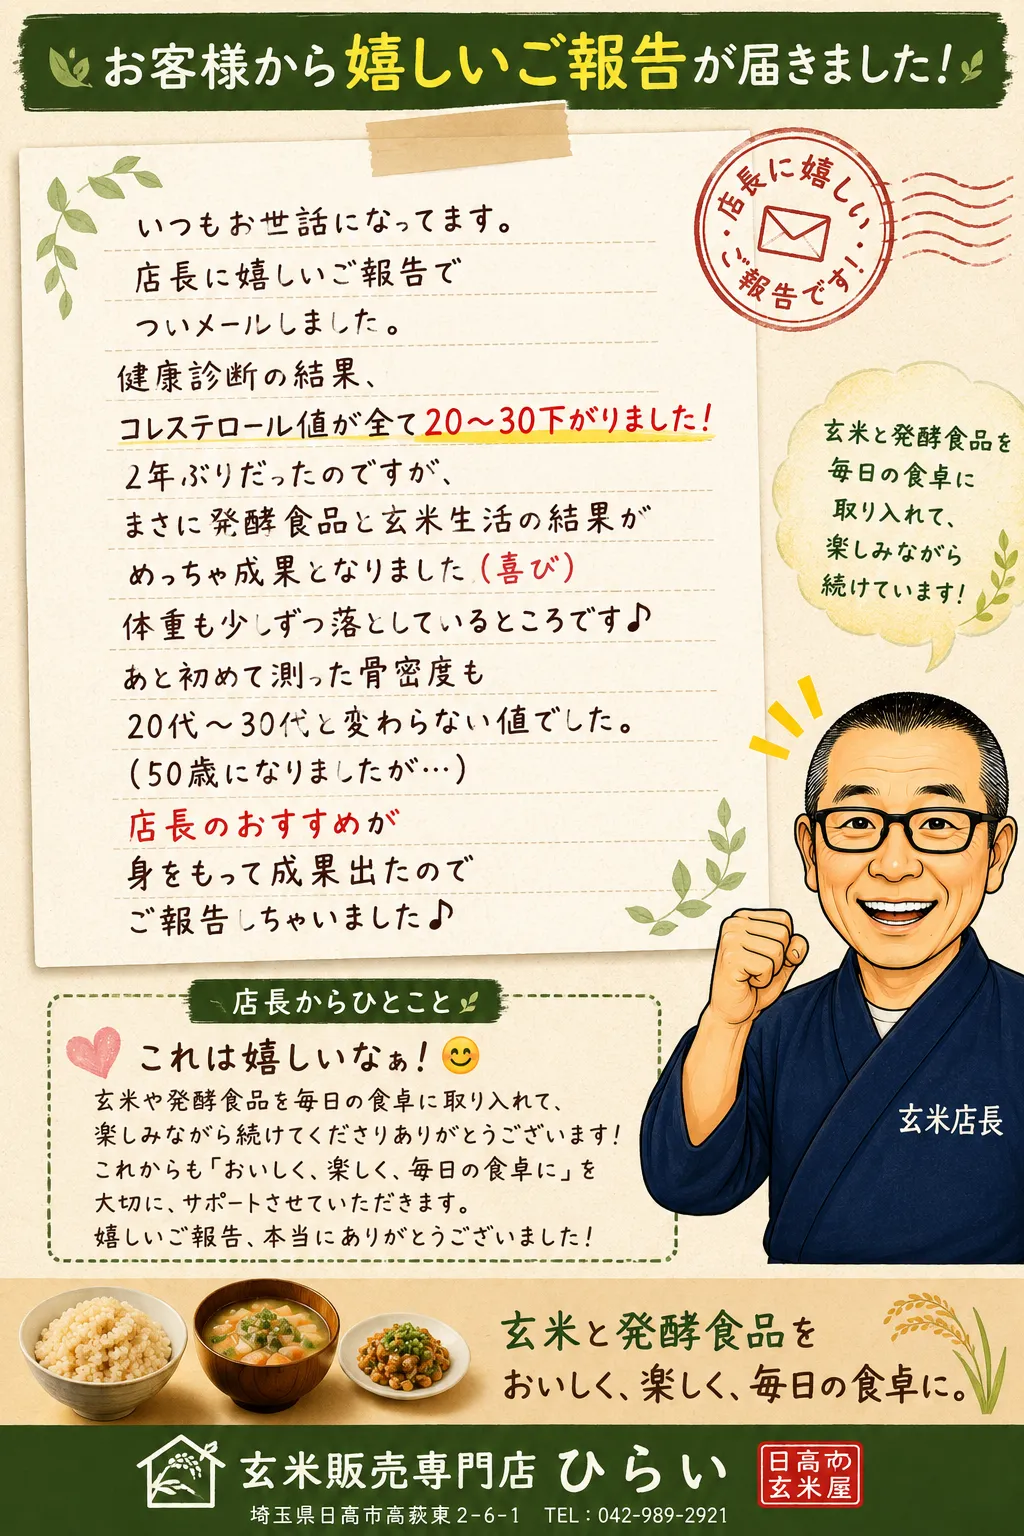 お客様から嬉しいご報告が届きました!
店長に嬉しい
ご報告です!
いつもお世話になってます。
店長に嬉しいご報告で
ついメールしました。
健康診断の結果、
コレステロール値が全て20～30下がりました!
2年ぶりだったのですが、
まさに発酵食品と玄米生活の結果が
めっちゃ成果となりました(喜び)
体重も少しずつ落としているところです♪
あと初めて測った骨密度も
20代～30代と変わらない値でした。
(50歳になりましたが…)
店長のおすすめが
身をもって成果出たので
ご報告しちゃいました♪
玄米と発酵食品を
毎日の食卓に
取り入れて、
楽しみながら
続けています!
店長からひとこと
これは嬉しいなぁ!
玄米や発酵食品を毎日の食卓に取り入れて、
楽しみながら続けてくださりありがとうございます!
これからも「おいしく、楽しく、毎日の食卓に」を
大切に、サポートさせていただきます。
嬉しいご報告、本当にありがとうございました!
玄米店長
玄米と発酵食品を
おいしく、楽しく、毎日の食卓に。
玄米販売専門店 ひらい
日高の
玄米屋
埼玉県日高市高萩東2-6-1 TEL:042-989-2921